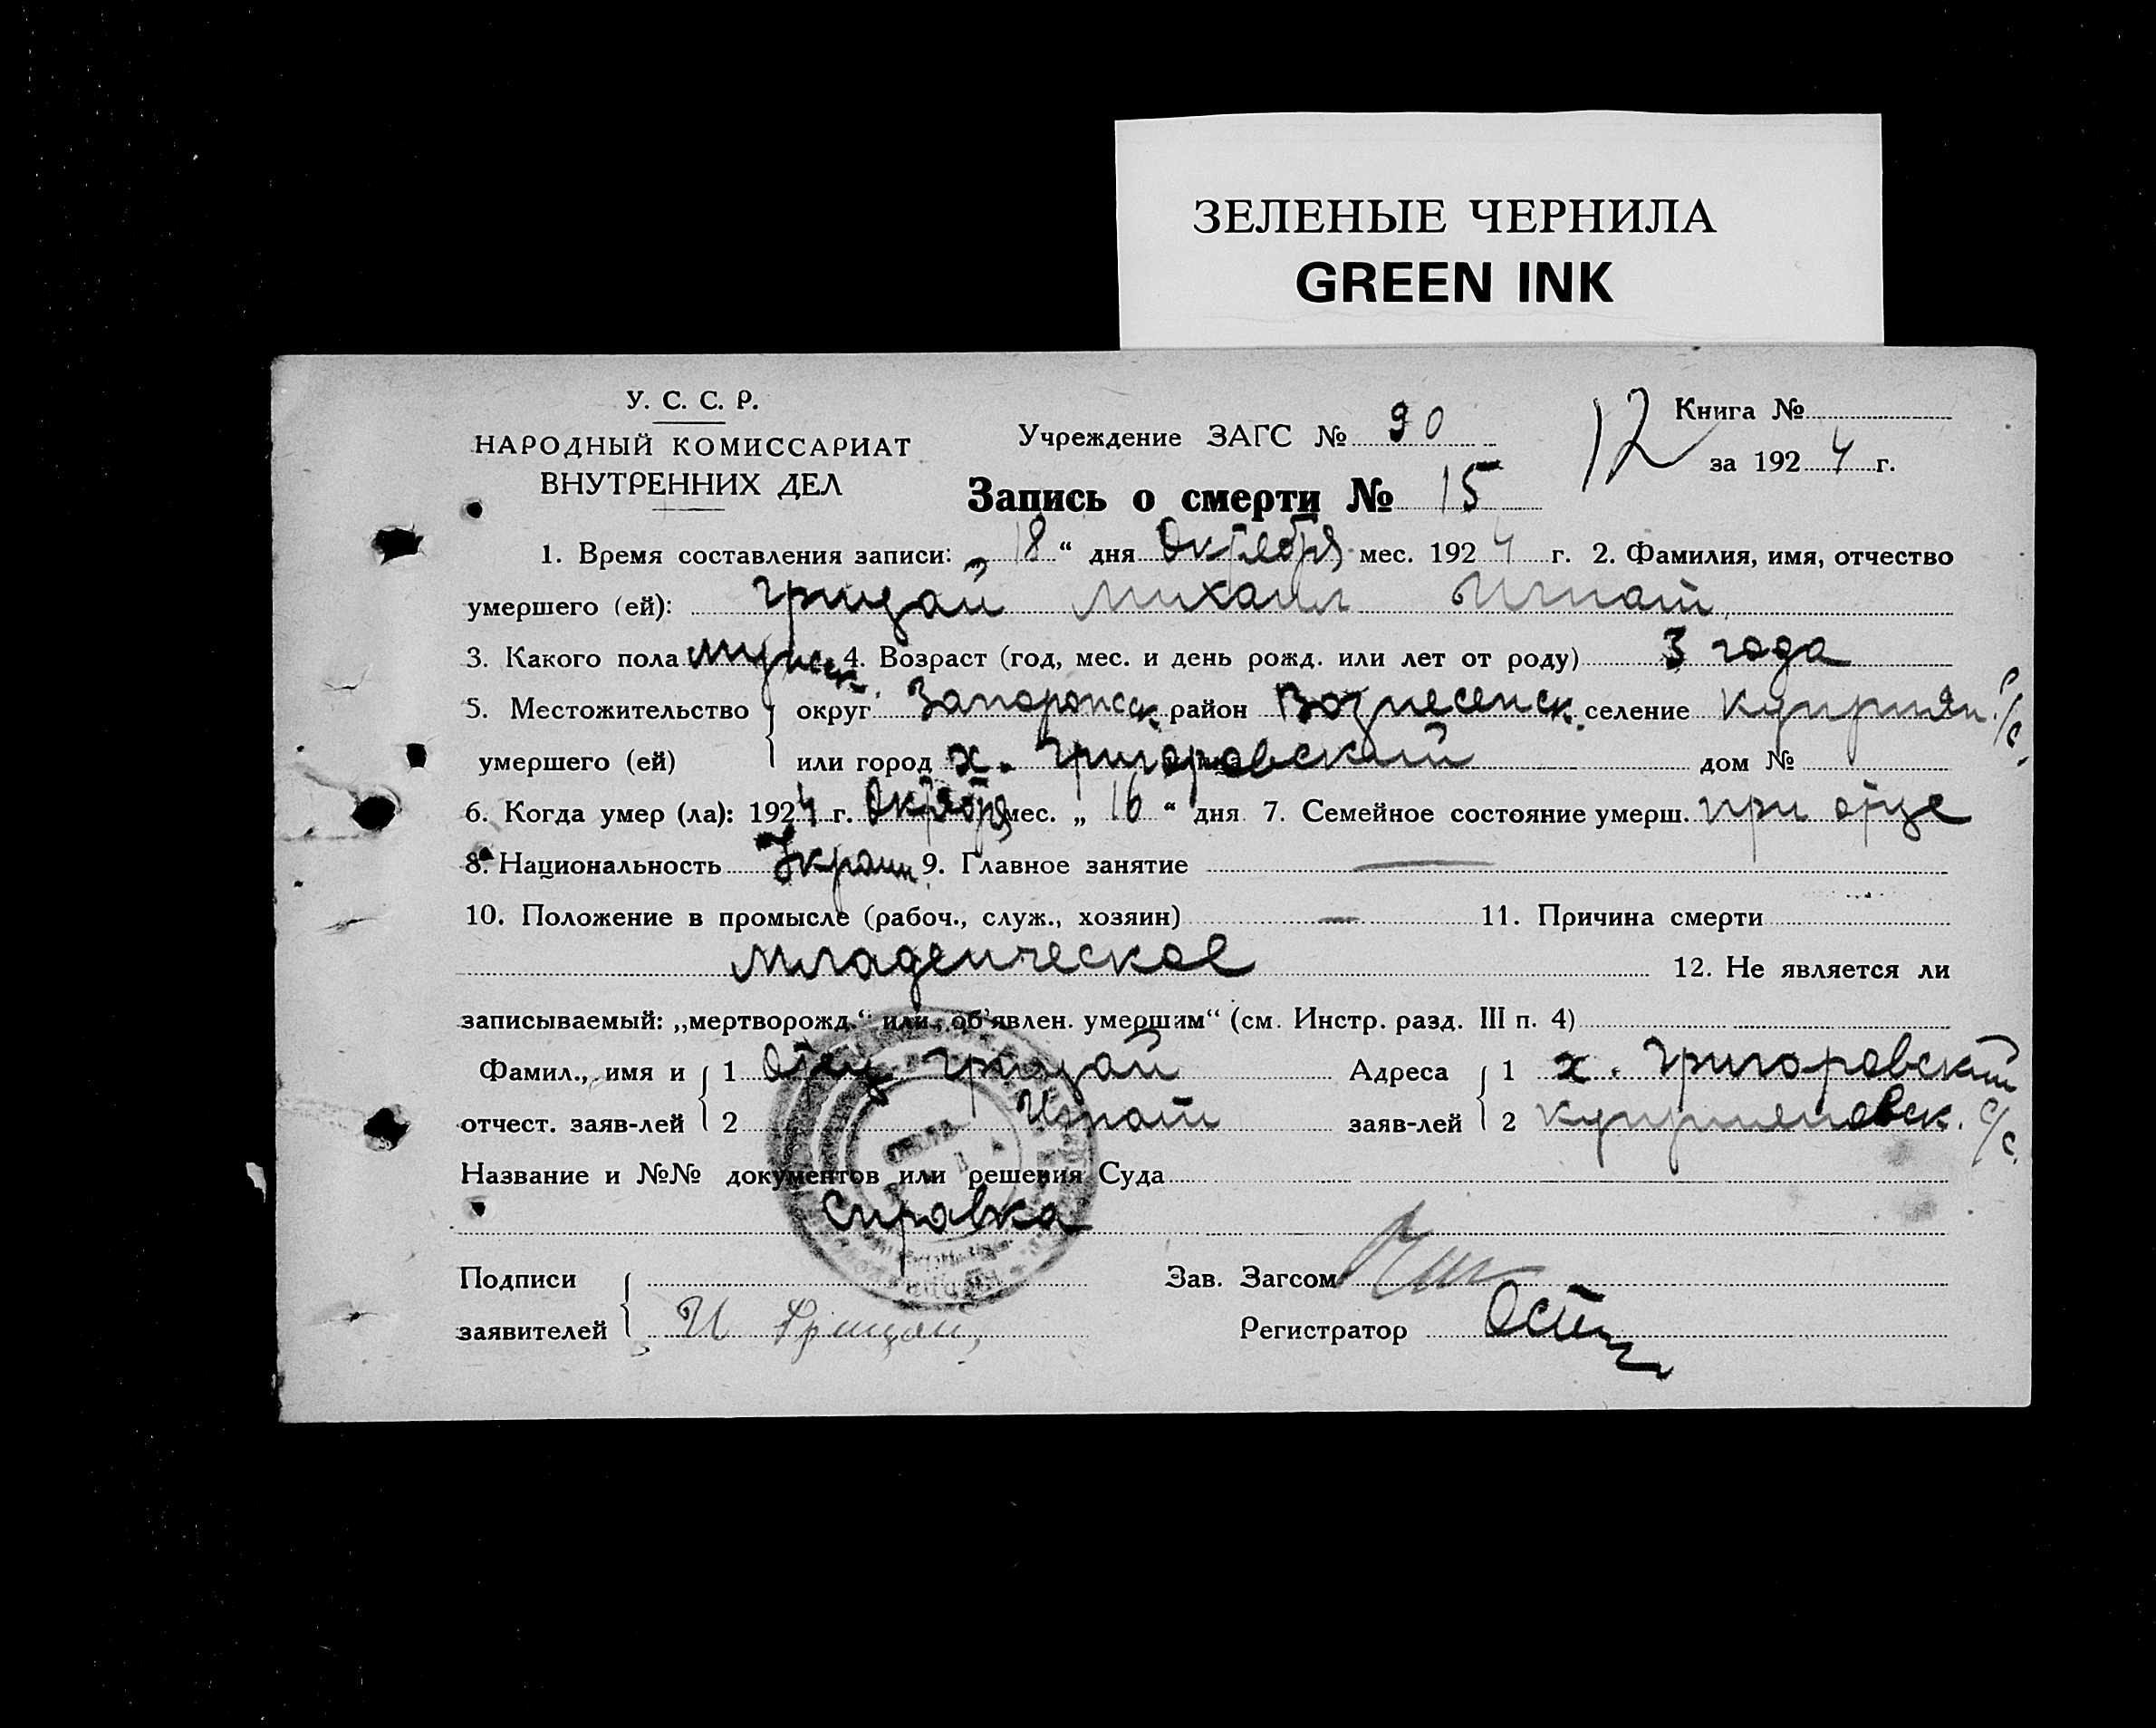 ЗЕЛЕНЫЕ ЧЕРНИЛА
GREEN INK
У. С. С. Р.
НАРОДНЫЙ КОМИССАРИАТ
ВНУТРЕННИХ ДЕЛ
Учреждение ЗАГС № 90
12 Книга №
за 1924 г.
Запись о смерти № 15
1. Время составления записи: „ 18 “ дня Октября мес. 1924 г. 2. Фамилия, имя, отчество
умершего (ей): Грицай Михаил Игнат
3. Какого пола мужск. 4. Возраст (год, мес. и день рожд. или лет от роду) 3 года
5. Местожительство округ Запорожск район Вознесенск. селение Куприян. с/с.
умершего (ей) или город х. Григоровский дом №
6. Когда умер (ла): 1924 г. Октября мес. „ 16 “ дня 7. Семейное состояние умерш. при отце
8. Национальность Украин 9. Главное занятие —
10. Положение в промысле (рабоч., служ., хозяин) — 11. Причина смерти
младенческое 12. Не является ли
записываемый: „мертворожд.“ или „об’явлен. умершим“ (см. Инстр. разд. III п. 4)
Фамил., имя и 1 Отец Грицай Адреса 1 х. Григоровский
отчест. заяв-лей 2 Игнат заяв-лей 2 Куприяновск. с/с.
Название и №№ документов или решения Суда
Справка
Подписи Зав. Загсом
заявителей И Грицай, Регистратор